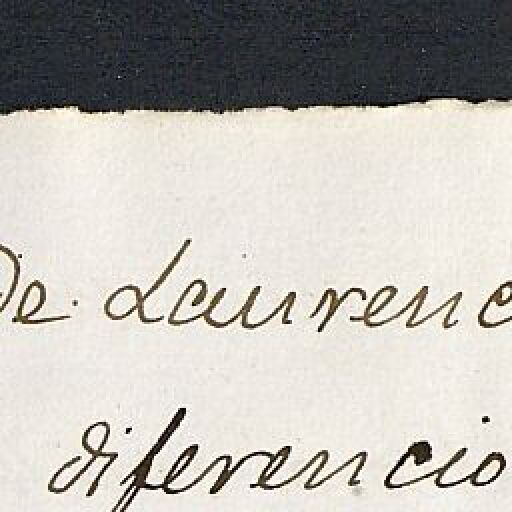 De Laurenc
diferencio